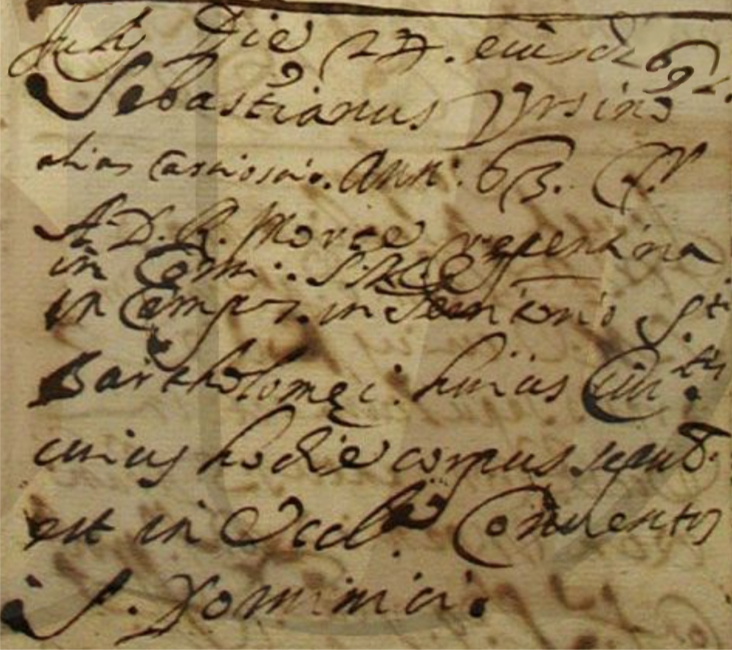 July Die 27. eiusd 69
Sebastianus Ursino
alias Ann: 63.
A. D. R. Morte repentina
in Com:. S. M. E.
in in Territorio Sti
Bartholomei. huius Ciu.tis
cuius hodie corpus sepult.
est in Eccl.a Conuentus
S. Dominici.